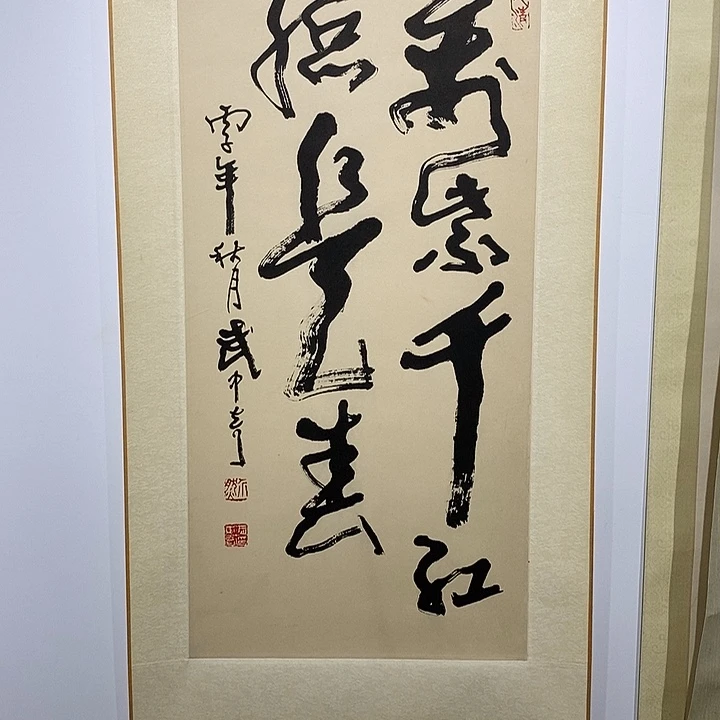 萬紫千紅
總是春
零年秋月武中奇